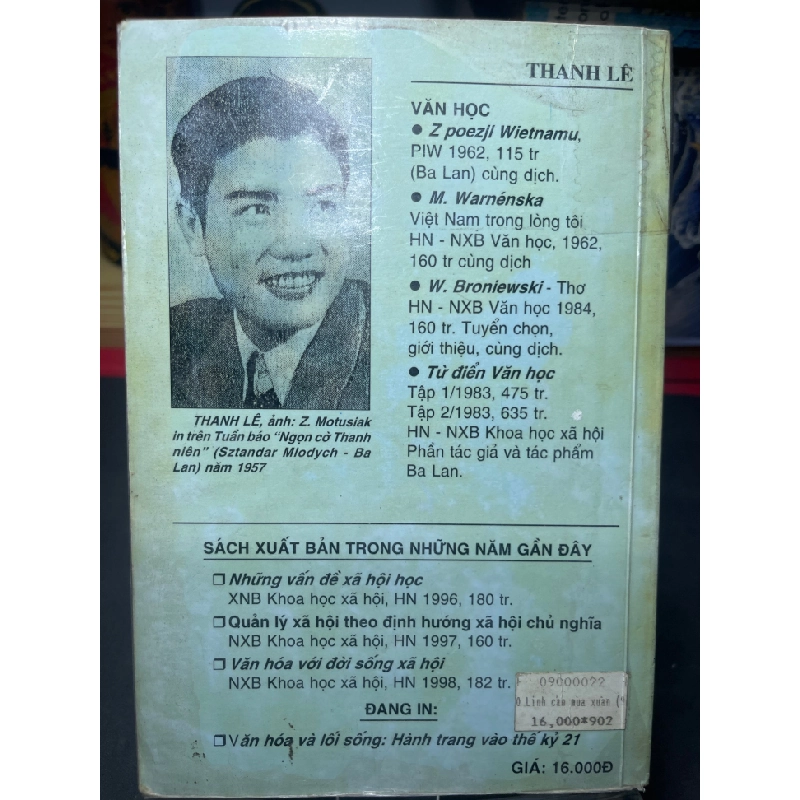 THANH LÊ
VĂN HỌC
● Z poezji Wietnamu,
PIW 1962, 115 tr
(Ba Lan) cùng dịch.
● M. Warnénska
Việt Nam trong lòng tôi
HN - NXB Văn học, 1962,
160 tr cùng dịch
● W. Broniewski - Thơ
HN - NXB Văn học 1984,
160 tr. Tuyển chọn,
giới thiệu, cùng dịch.
● Từ điển Văn học
Tập 1/1983, 475 tr.
Tập 2/1983, 635 tr.
HN - NXB Khoa học xã hội
Phần tác giả và tác phẩm
Ba Lan.
THANH LÊ, ảnh: Z. Motusiak
in trên Tuần báo "Ngọn cờ Thanh
niên" (Sztandar Mlodych - Ba
Lan) năm 1957
SÁCH XUẤT BẢN TRONG NHỮNG NĂM GẦN ĐÂY
❒ Những vấn đề xã hội học
XNB Khoa học xã hội, HN 1996, 180 tr.
❒ Quản lý xã hội theo định hướng xã hội chủ nghĩa
NXB Khoa học xã hội, HN 1997, 160 tr.
❒ Văn hóa với đời sống xã hội
NXB Khoa học xã hội, HN 1998, 182 tr.
09000022
Linh cảm mùa xuân
16,000*902
ĐANG IN:
❒ Văn hóa và lối sống: Hành trang vào thế kỷ 21
GIÁ: 16.000Đ